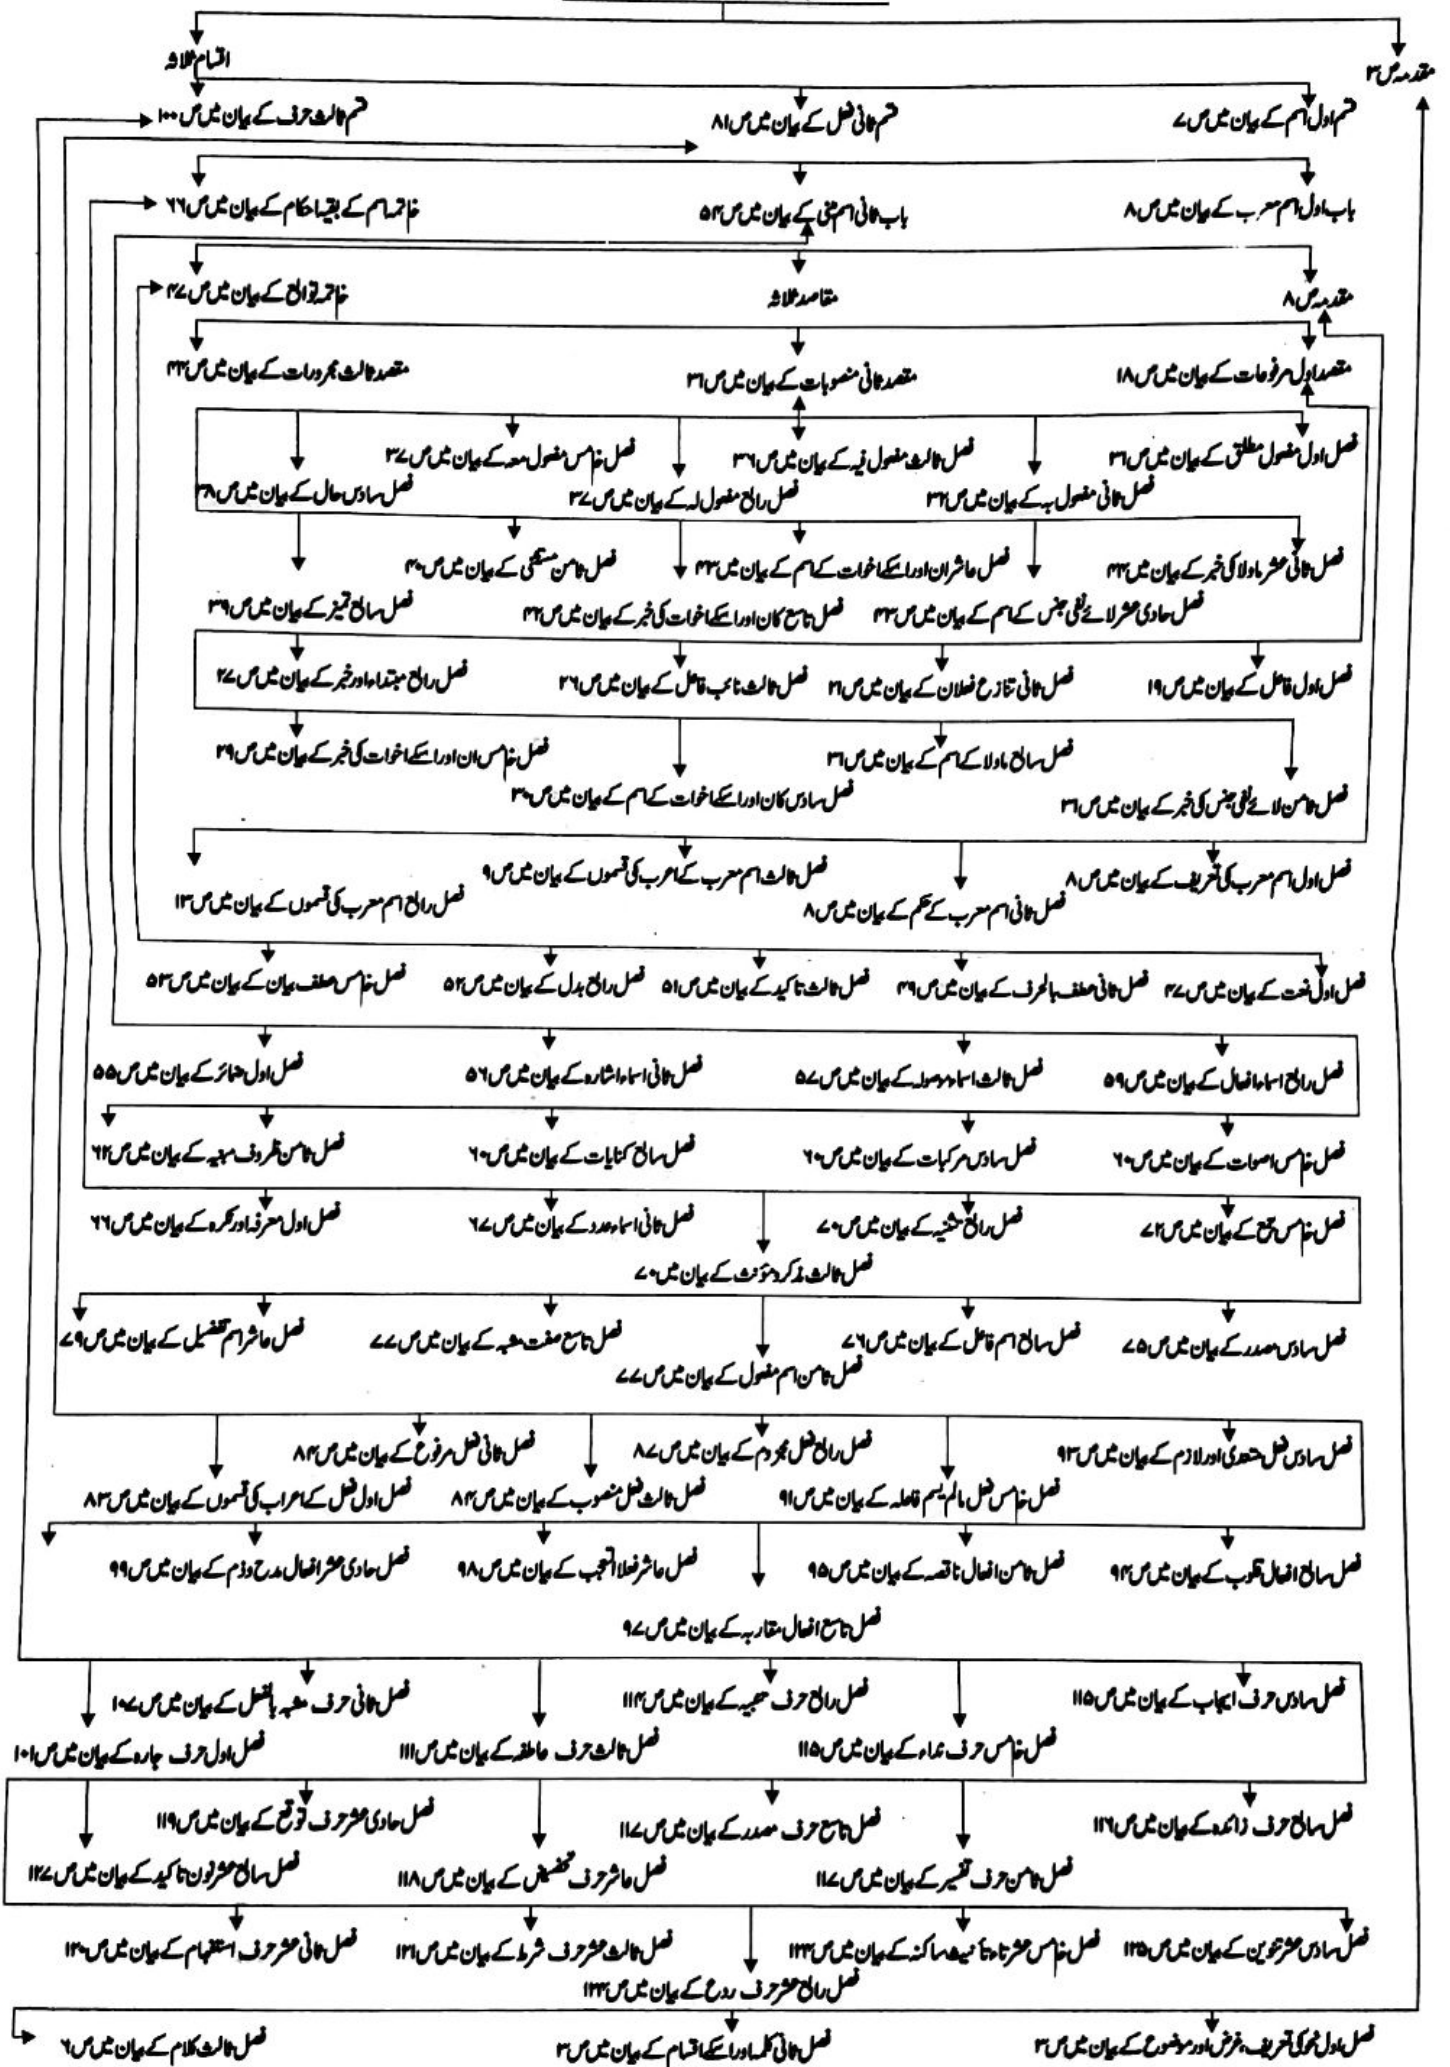 مقدمہ ص ۳
اقسام ثلاثہ
قسم اول اسم کے بیان میں ص ۷
قسم ثانی فعل کے بیان میں ص ۸۱
قسم ثالث حرف کے بیان میں ص ۱۰۰
باب اول اسم معرب کے بیان میں ص ۸
باب ثانی اسم مبنی کے بیان میں ص ۵۴
خاتمہ اسم کے بقیہ احکام کے بیان میں ص ۶۶
مقدمہ ص ۸
مقاصد ثلاثہ
خاتمہ توابع کے بیان میں ص ۴۷
مقصد اول مرفوعات کے بیان میں ص ۱۸
مقصد ثانی منصوبات کے بیان میں ص ۳۱
مقصد ثالث مجرورات کے بیان میں ص ۴۴
فصل اول مفعول مطلق کے بیان میں ص ۳۱
فصل ثانی مفعول بہ کے بیان میں ص ۳۲
فصل ثالث مفعول فیہ کے بیان میں ص ۳۶
فصل رابع مفعول لہ کے بیان میں ص ۳۷
فصل خامس مفعول معہ کے بیان میں ص ۳۷
فصل سادس حال کے بیان میں ص ۳۸
فصل ثانی عشر ما ولا کی خبر کے بیان میں ص ۴۴
فصل حادی عشر لائے نفی جنس کے اسم کے بیان میں ص ۴۳
فصل عاشر ان اور اسکے اخوات کے اسم کے بیان میں ص ۴۳
فصل تاسع کان اور اسکے اخوات کی خبر کے بیان میں ص ۴۲
فصل ثامن مستثنیٰ کے بیان میں ص ۴۰
فصل سابع تمیز کے بیان میں ص ۳۹
فصل اول فاعل کے بیان میں ص ۱۹
فصل ثانی تنازع فعلان کے بیان میں ص ۲۱
فصل ثالث نائب فاعل کے بیان میں ص ۲۶
فصل رابع مبتداء اور خبر کے بیان میں ص ۲۷
فصل خامس ان اور اسکے اخوات کی خبر کے بیان میں ص ۲۹
فصل سادس کان اور اسکے اخوات کے اسم کے بیان میں ص ۳۰
فصل سابع ما ولا کے اسم کے بیان میں ص ۳۱
فصل ثامن لائے نفی جنس کی خبر کے بیان میں ص ۳۱
فصل اول اسم معرب کی تعریف کے بیان میں ص ۸
فصل ثانی اسم معرب کے حکم کے بیان میں ص ۸
فصل ثالث اسم معرب کے اعرب کی قسموں کے بیان میں ص ۹
فصل رابع اسم معرب کی قسموں کے بیان میں ص ۱۳
فصل اول نعت کے بیان میں ص ۴۷
فصل ثانی عطف بالحرف کے بیان میں ص ۴۹
فصل ثالث تاکید کے بیان میں ص ۵۱
فصل رابع بدل کے بیان میں ص ۵۲
فصل خامس عطف بیان کے بیان میں ص ۵۳
فصل رابع اسماء افعال کے بیان میں ص ۵۹
فصل ثالث اسماء موصولہ کے بیان میں ص ۵۷
فصل ثانی اسماء اشارہ کے بیان میں ص ۵۶
فصل اول ضمائر کے بیان میں ص ۵۵
فصل خامس اصوات کے بیان میں ص ۶۰
فصل سادس مرکبات کے بیان میں ص ۶۰
فصل سابع کنایات کے بیان میں ص ۶۰
فصل ثامن ظروف مبنیہ کے بیان میں ص ۶۲
فصل خامس جمع کے بیان میں ص ۷۲
فصل رابع تثنیہ کے بیان میں ص ۷۰
فصل ثانی اسماء عدد کے بیان میں ص ۶۷
فصل اول معرفہ اور نکرہ کے بیان میں ص ۶۶
فصل ثالث مذکر و مؤنث کے بیان میں ۷۰
فصل سادس مصدر کے بیان میں ص ۷۵
فصل سابع اسم فاعل کے بیان میں ص ۷۶
فصل تاسع صفت مشبہ کے بیان میں ص ۷۷
فصل عاشر اسم تفضیل کے بیان میں ص ۷۹
فصل ثامن اسم مفعول کے بیان میں ص ۷۷
فصل سادس فعل متعدی اور لازم کے بیان میں ص ۹۳
فصل رابع فعل مجزوم کے بیان میں ص ۸۷
فصل ثانی فعل مرفوع کے بیان میں ص ۸۴
فصل خامس فعل مالم یسم فاعلہ کے بیان میں ص ۹۱
فصل ثالث فعل منصوب کے بیان میں ص ۸۴
فصل اول فعل کے اعراب کی قسموں کے بیان میں ص ۸۳
فصل سابع افعال قلوب کے بیان میں ص ۹۴
فصل ثامن افعال ناقصہ کے بیان میں ص ۹۵
فصل عاشر فعلا التعجب کے بیان میں ص ۹۸
فصل حادی عشر افعال مدح وذم کے بیان میں ص ۹۹
فصل تاسع افعال مقاربہ کے بیان میں ص ۹۷
فصل سادس حرف ایجاب کے بیان میں ص ۱۱۵
فصل رابع حرف تنبیہ کے بیان میں ص ۱۱۴
فصل ثانی حرف مشبہ بالفعل کے بیان میں ص ۱۰۷
فصل خامس حرف نداء کے بیان میں ص ۱۱۵
فصل ثالث حرف عاطفہ کے بیان میں ص ۱۱۱
فصل اول حرف جارہ کے بیان میں ص ۱۰۱
فصل سابع حرف زائدہ کے بیان میں ص ۱۱۶
فصل تاسع حرف مصدر کے بیان میں ص ۱۱۷
فصل حادی عشر حرف توقع کے بیان میں ص ۱۱۹
فصل ثامن حرف تفسیر کے بیان میں ص ۱۱۷
فصل عاشر حرف تحضیض کے بیان میں ص ۱۱۸
فصل سابع عشر نون تاکید کے بیان میں ص ۱۲۷
فصل سادس عشر تنوین کے بیان میں ص ۱۲۵
فصل خامس عشر تاء تأنیث ساکنہ کے بیان میں ص ۱۲۴
فصل ثالث عشر حرف شرط کے بیان میں ص ۱۲۱
فصل ثانی عشر حرف استفہام کے بیان میں ص ۱۲۰
فصل رابع عشر حرف ردع کے بیان میں ص ۱۲۴
فصل اول نحو کی تعریف، غرض اور موضوع کے بیان میں ص ۳
فصل ثانی کلمہ اور اسکے اقسام کے بیان میں ص ۴
فصل ثالث کلام کے بیان میں ص ۶